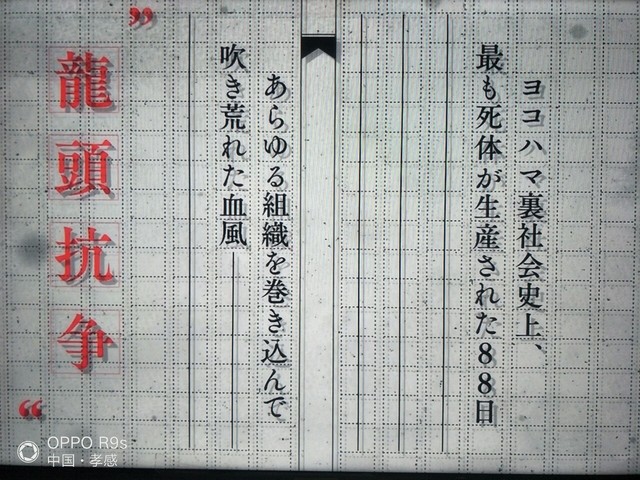 ヨコハマ裏社会史上、
最も死体が生産された88日
あらゆる組織を巻き込んで
吹き荒れた血風――
”龍頭抗争“
OPPO R9s
中国・孝感